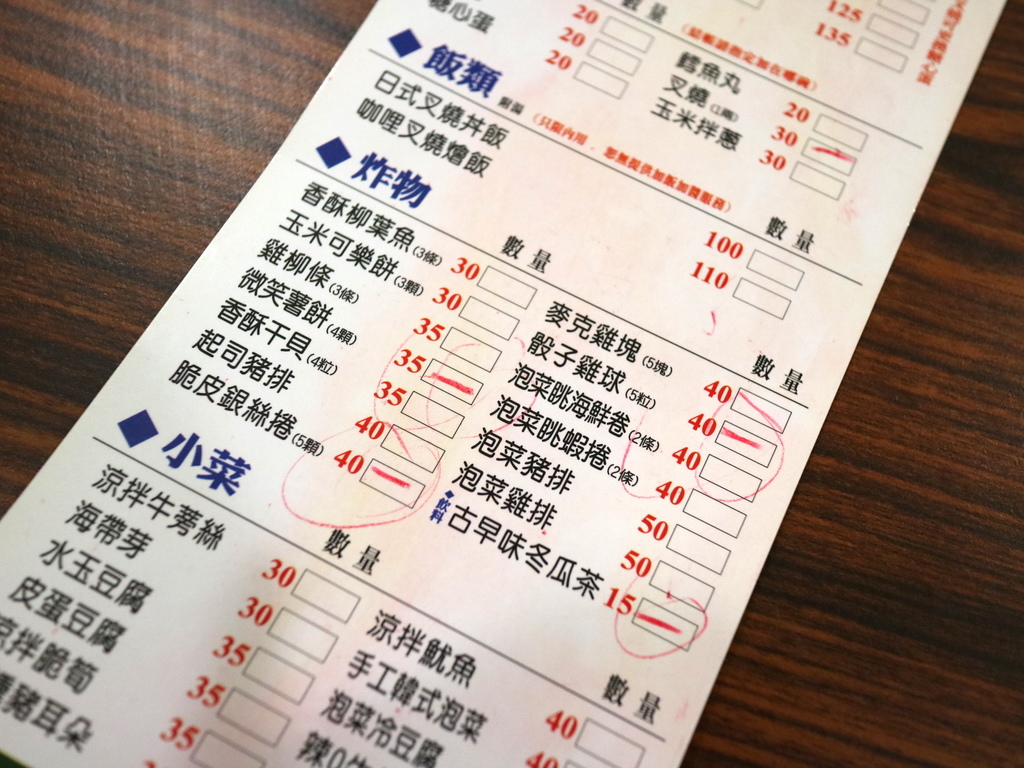 20 125
糖心蛋 20 數量 135
20 (結帳請指定加在哪碗)
鱈魚丸 20
叉燒 30
玉米拌蔥 30
飯類 附湯 (只限內用，恕無提供加飯加醬服務)
日式叉燒丼飯 數量
咖哩叉燒燴飯 100
110
炸物 數量 數量
香酥柳葉魚(3條) 30
玉米可樂餅(3顆) 30
雞柳條(3條) 35
微笑薯餅(4顆) 35
香酥干貝(4粒) 35
起司豬排 40
脆皮銀絲捲(5顆) 40
麥克雞塊(5塊) 40
骰子雞球(5粒) 40
泡菜眺海鮮卷(2條) 40
泡菜眺蝦捲(2條) 40
泡菜豬排 50
泡菜雞排 50
飲料 古早味冬瓜茶 15
小菜 數量 數量
涼拌牛蒡絲 30
海帶芽 30
水玉豆腐 35
皮蛋豆腐 35
涼拌脆筍 35
豬耳朵
涼拌魷魚 40
手工韓式泡菜 40
泡菜冷豆腐